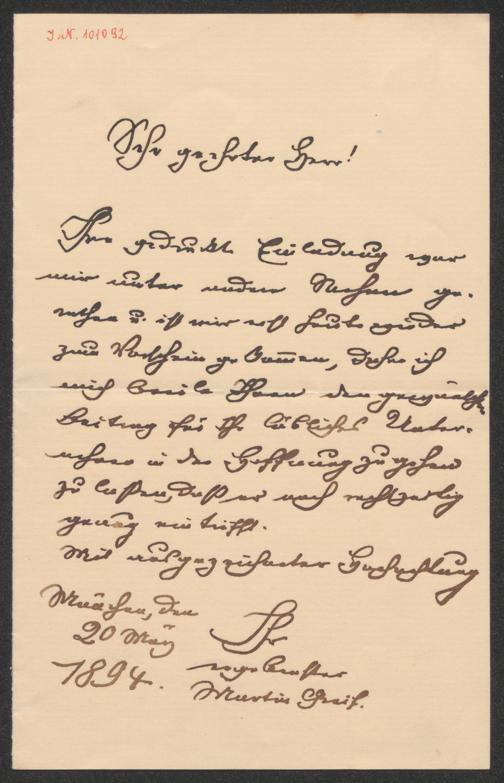 J.N. 101092
Sehr geehrter Herr!
Ihre gedruckte Einladung war
mir unter andere Sachen ge-
rathen u. ist mir erst heute wieder
zum Vorschein gekommen, daher ich
mich beeile Ihnen den gewünschten
Beitrag für Ihr löbliches Unter-
nehmen in der Hoffnung zugehen
zu lassen, daß er noch rechtzeitig
genug eintrifft.
Mit ausgezeichneter Hochachtung
München, den
20 May
1894.
Ihr
ergebenster
Martin Greif.